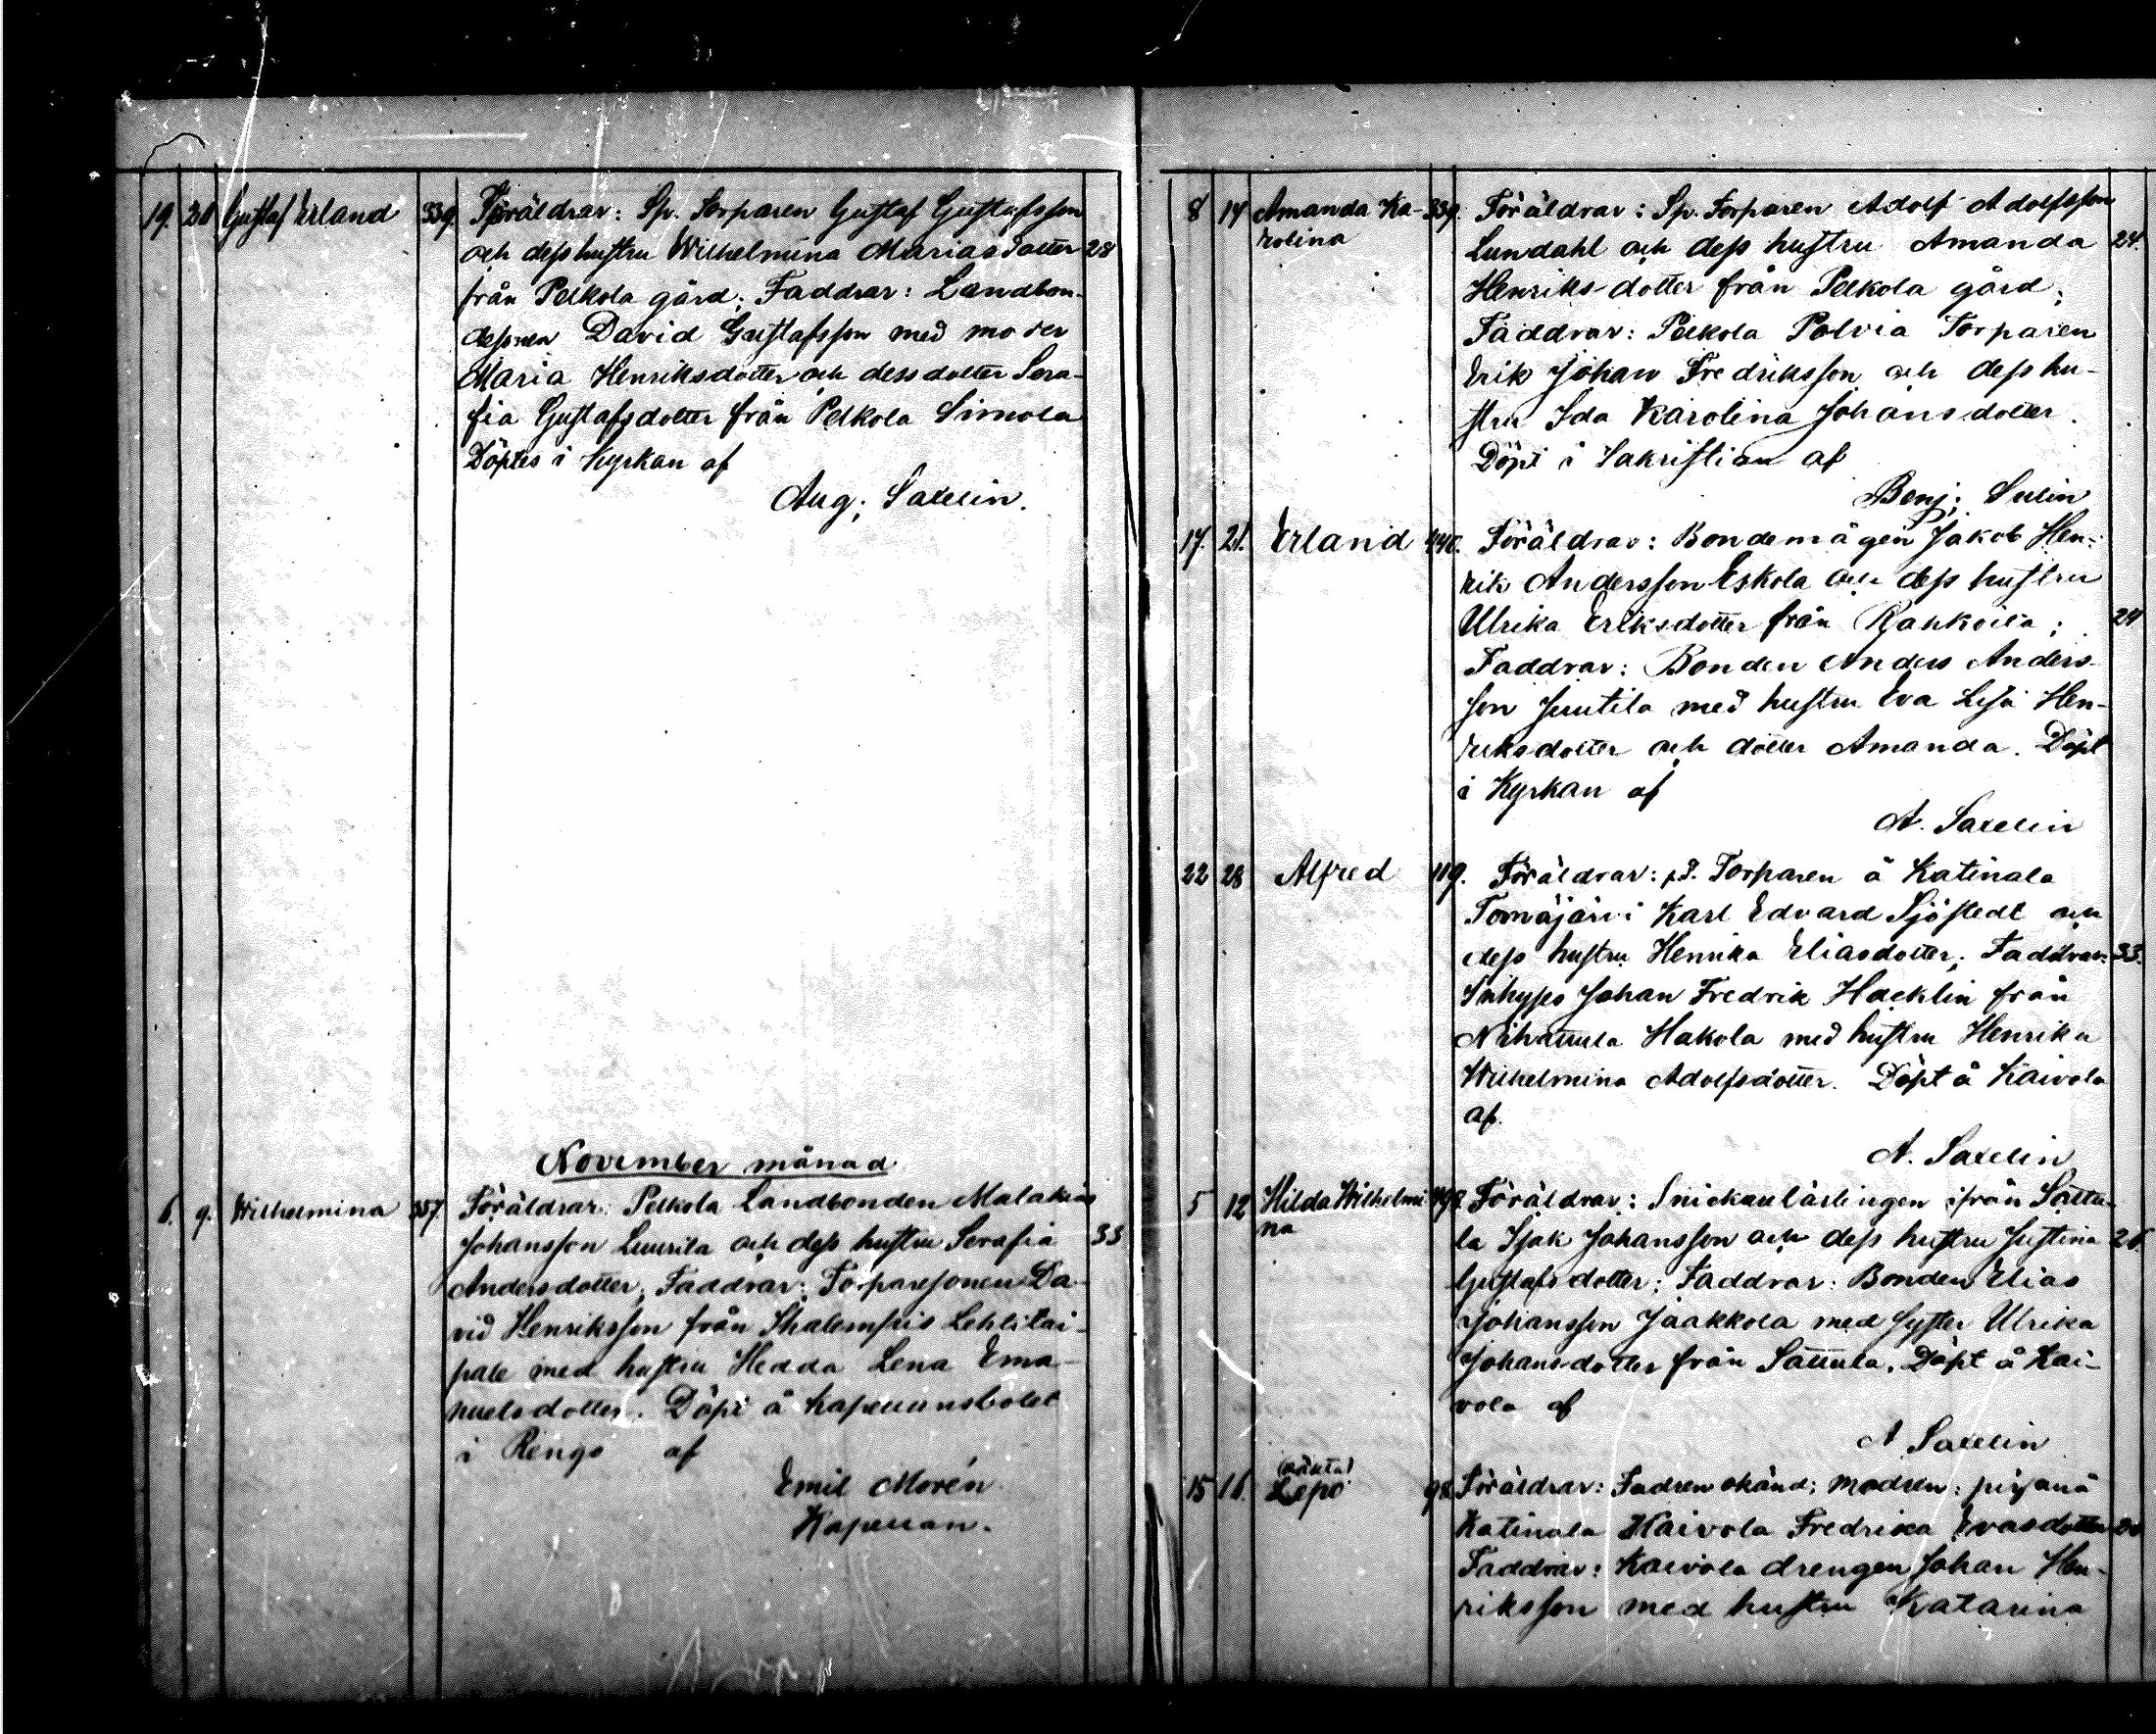 19. 20 Gustaf Erland 339. Föräldrar: Sp. Torparen Gustaf Gustafsson
och dess hustru Wilhelmina Mariasdotter 28
från Pelkola gård; Faddrar: Landbon-
desonen David Gustafsson med moder
Maria Henriksdotter och dess dotter Sera-
fia Gustafsdotter från Pelkola Simola
Döptes i Kyrkan af
Aug; Saxelin.
November månad
6. 9. Wilhelmina 357 Föräldrar: Pelkola Landbonden Malakias
Johansson Luurila och dess hustru Serafia 33
Andersdotter; Faddrar; Torparesonen Da-
vid Henriksson från Lehlitai-
pale med hustru Hedda Lena Ema-
nuelsdotter. Döpt å Kapellansbolet
i Rengo af
Emil Morén
Kapellan.
8 14 Amanda Ka- 339. Föräldrar: Sp. Torparen Adolf Adolfsson
rolina Lundahl och dess hustru Amanda 24.
Henriks-dotter från Pelkola gård;
Faddrar: Pelkola Polvia Torparen
Erik Johan Fredriksson och dess hu-
stru Ida Karolina Johansdotter.
Döpt i Sakristian af
Benj; Sulin
17. 21. Erland 440. Föräldrar: Bondemågen Jakob Hen-
rik Andersson Eskola och dess hustru
Ulrika Eriksdotter från Rahkoila; 24
Faddrar: Bonden Anders Anders-
son Juutila med hustru Eva Lisa Hen-
riksdotter och dotter Amanda. Döpt
i Kyrkan af
A. Saxelin
22 28 Alfred 119. Föräldrar: Torparen å Katinala
Tomäjärvi Karl Edvard Sjöstedt och
dess hustru Henrika Eliasdotter; Faddrar: 33.
Inhyses Johan Fredrik Hacklin från
Nihattula Hakola med hustru Henrika
Wilhelmina Adolfsdotter. Döpt å Kaivola
af.
A. Saxelin
5 12 Hilda Wilhelmi- Föräldrar: Snickarelärlingen ifrån Sattu-
na la Isak Johansson och dess hustru Justina 26.
Gustafsdotter; Faddrar: Bonden Elias
Johansson Jaakkola med syster Ulrika
Johansdotter från Sattula. Döpt å Kai-
vola af
A Saxelin
(oäkta)
15 16. 98. Föräldrar: Fadren okänd; Modren: pigan å
Katinala Kaivola Fredrika Evasdotter
Faddrar: Kaivola drengen Johan Hen-
riksson med hustru Katarina